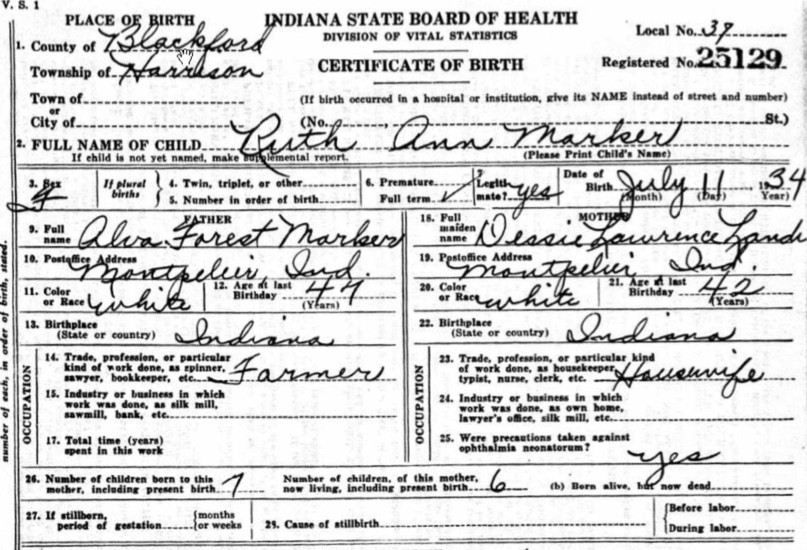 V. S. 1
PLACE OF BIRTH
INDIANA STATE BOARD OF HEALTH
DIVISION OF VITAL STATISTICS
CERTIFICATE OF BIRTH
Local No. 39
Registered No. 25129
1. County of Blackford
Township of Harrison
Town of
or
City of
(If birth occurred in a hospital or institution, give its NAME instead of street and number)
(No. St.)
2. FULL NAME OF CHILD Ruth Ann Marker
If child is not yet named, make supplemental report. (Please Print Child's Name)
3. Sex f
If plural births
4. Twin, triplet, or other
5. Number in order of birth
6. Premature
Full term ✓
7 Legitimate? yes
Date of Birth July 11 1934
(Month) (Day) (Year)
FATHER
9. Full name Alva Forest Marker
10. Postoffice Address
Montpelier, Ind.
11. Color or Race white
12. Age at last Birthday 47
(Years)
13. Birthplace
(State or country) Indiana
OCCUPATION
14. Trade, profession, or particular
kind of work done, as spinner,
sawyer, bookkeeper, etc. Farmer
15. Industry or business in which
work was done, as silk mill,
sawmill, bank, etc.
17. Total time (years)
spent in this work
MOTHER
18. Full maiden name Dessie Lawrence Land
19. Postoffice Address
Montpelier, Ind.
20. Color or Race white
21. Age at last Birthday 42
(Years)
22. Birthplace
(State or country) Indiana
OCCUPATION
23. Trade, profession, or particular kind
of work done, as housekeeper,
typist, nurse, clerk, etc. Housewife
24. Industry or business in which
work was done, as own home,
lawyer's office, silk mill, etc.
25. Were precautions taken against
ophthalmia neonatorum? yes
26. Number of children born to this
mother, including present birth 7
Number of children, of this mother,
now living, including present birth 6
(b) Born alive, but now dead
27. If stillborn,
period of gestation {months or weeks
28. Cause of stillbirth
{Before labor
During labor
number of each, in order of birth, stated.